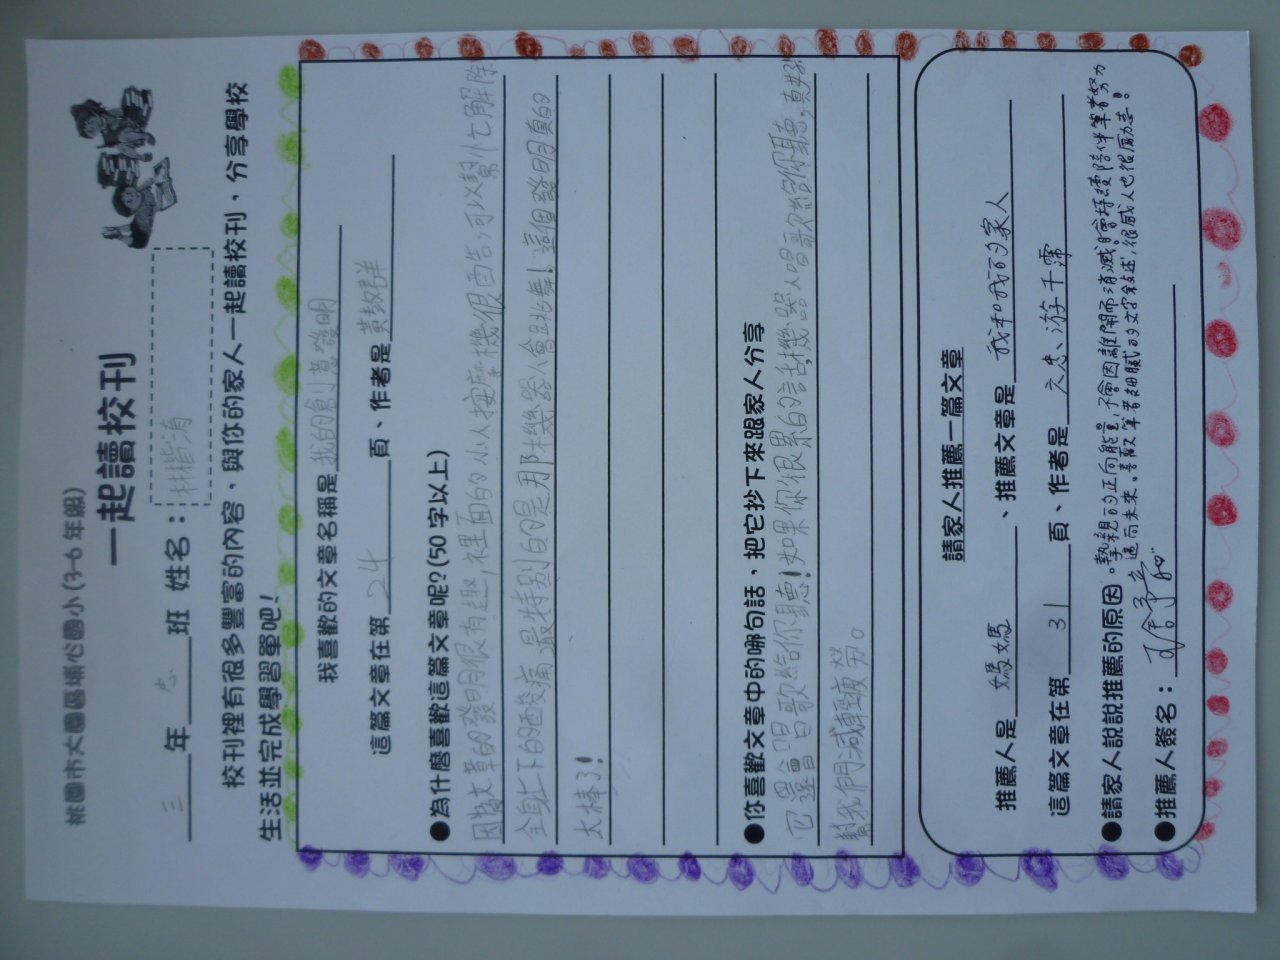 桃園市大園區埔心國小(3-6年級)
一起讀校刊
三年忠班 姓名：林楷淯
校刊裡有很多豐富的內容、與你的家人一起讀校刊，分享學校
生活並完成學習單吧！
我喜歡的文章名稱是我的創意發明
這篇文章在第24頁、作者是黃教群
●為什麼喜歡這篇文章呢?(50字以上)
因為文章的發明很有趣,裡面的小人按摩機很酷,可以幫忙解除
全身上下的酸痛,最特別的是那機器人會跳舞！這個發明真的
太棒了！
●你喜歡文章中的哪句話，把它抄下來跟家人分享
它還會唱歌給你聽！如果你很累的話,機器人唱歌給你聽,真好
幫我們減輕疲勞。
請家人推薦一篇文章
推薦人是媽媽、推薦文章是我和我的家人
這篇文章在第31頁、作者是六忠、游千霈
●請家人說說推薦的原因。摯親的正向能量,不會因離開而消滅,會持續陪伴筆者努力
邁向未來。喜歡筆者細膩的文字敘述,很感人也很勵志。
●推薦人簽名：